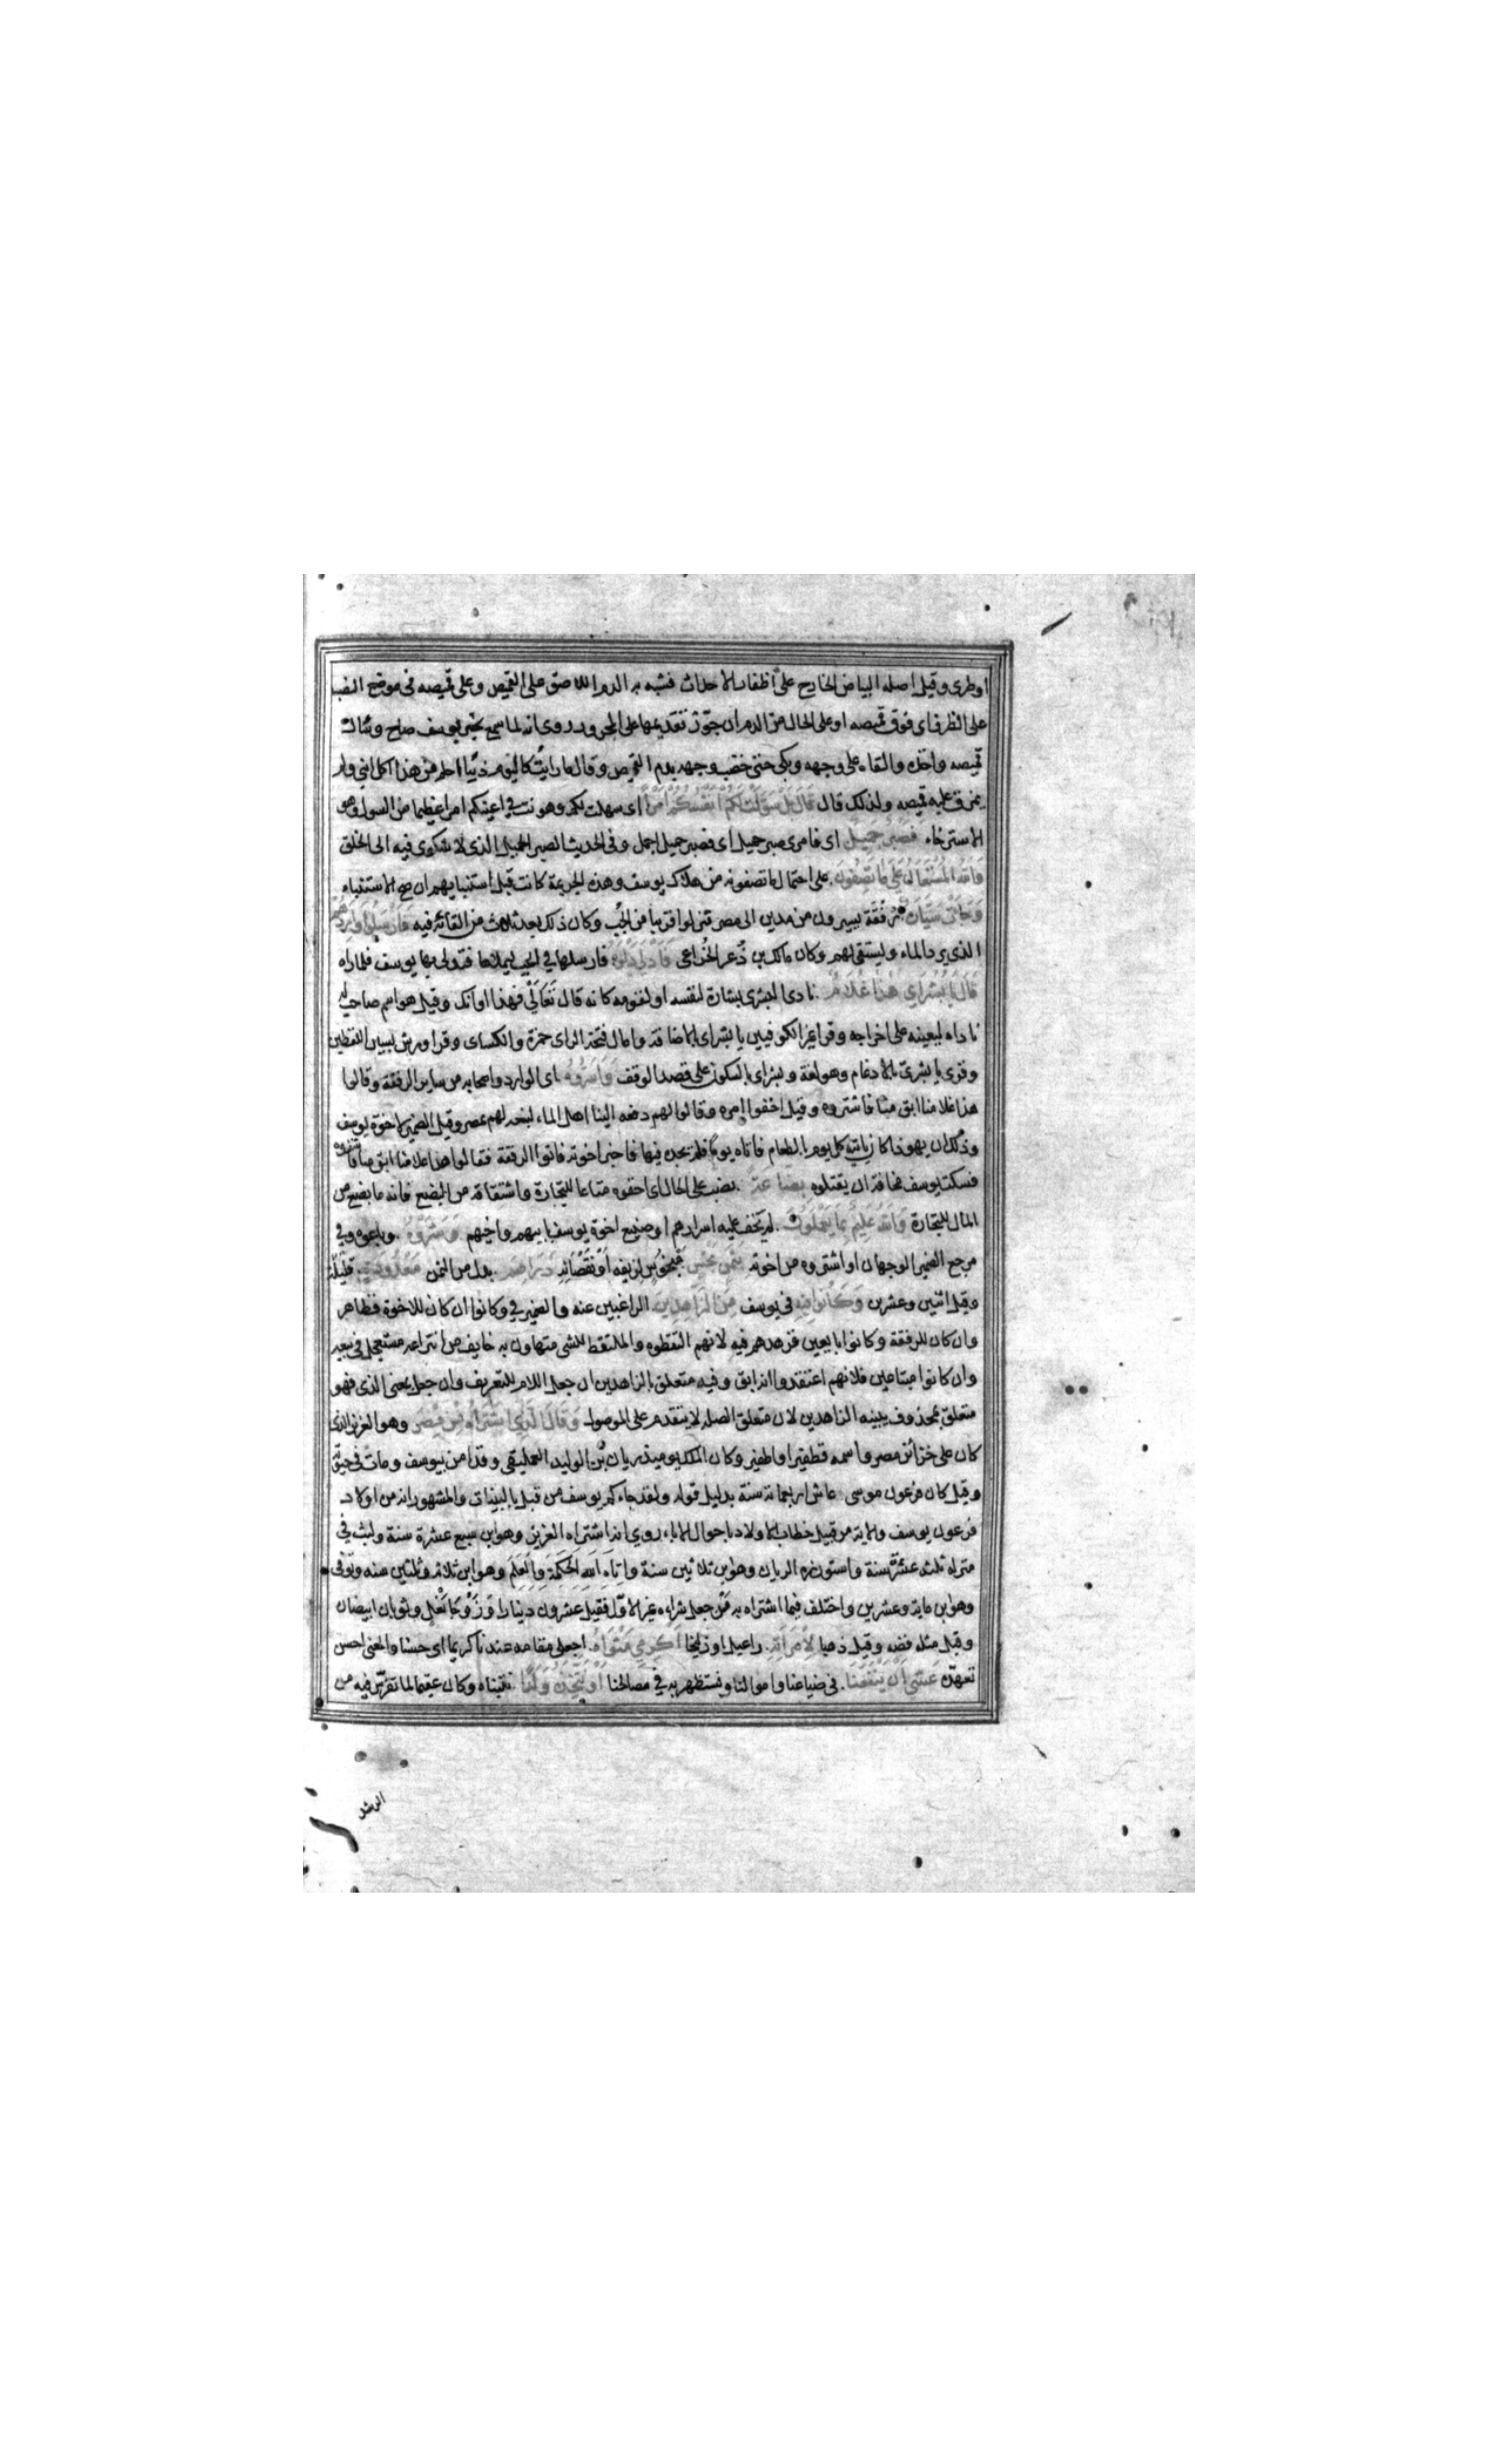 او طرى وقيل اصله البياض الخارج على أظفار الاحداث فشبه به الدم اللاصق على القميص وعلى قميصه فى موضع النصب
على الظرف اى فوق قميصه او على الحال من الدم ان جوّز تقديمها على المجرور روى انه لما سمع بخبر يوسف صاح وسأل
قميصه واخذه والقاه على وجهه وبكى حتى خضب وجهه بدم القميص وقال ما رايت كاليوم ذئبا احلم من هذا اكل ابنى ولم
يمزق عليه قميصه ولذلك قال قَالَ بَلْ سَوَّلَتْ لَكُمْ أَنفُسُكُمْ أَمْرًا اى سهلت لكم وهونت فى اعينكم امرا عظيما من السول وهو
الاسترخاء فَصَبْرٌ جَمِيلٌ اى فامرى صبر جميل اى فصبر جميل اجمل وفى الحديث الصبر الجميل الذى لا شكوى فيه الى الخلق
وَاللَّهُ الْمُسْتَعَانُ عَلَى مَا تَصِفُونَ على احتمال ما تصفونه من هلاك يوسف وهذه الجريمة كانت قبل استنبايهم ان صح الاستنباء
وَجَاءَتْ سَيَّارَةٌ رُفْقَة يسيرون من مدين الى مصر فنزلوا قريبا من الجُب وكان ذلك بعد ثلاث من القائه فيه فَأَرْسَلُوا وَارِدَهُمْ
الذى يرد الماء ويستقى لهم وكان مالك بن ذُعر الخُزاعى فَأَدْلَى دَلْوَهُ فارسلها فى الجب ليملاها فتدلى بها يوسف فلما راه
قَالَ يَا بُشْرَايَ هَذَا غُلَامٌ نادى البشرى بشارة لنفسه او لقومه كانه قال تَعَالَىْ فهذا اوانك وقيل هو اسم صاحب له
ناداه ليعينه على اخراجه وقرا غير الكوفيين يا بشراى بالاضافة وامال فتحة الراى حمزة والكساى وقرا ورش بين اللفظين
وقرى يا بشرىّ بالادغام وهو لغة وبشراى بالسكون على قصد الوقف وَأَسَرُّوهُ اى الوارد واصحابه من ساير الرفقة وقالوا
هذا غلامنا ابق منا فاشتروه وقيل اخفوا امره وقالوا لهم دفعه الينا اهل الماء لنبيعه لهم بمصر وقيل الضمير لاخوة يوسف
وذلك ان يهوذا كان ياتيه كل يوم بالطعام فاتاه يوما فلم يجده فيها فاخبر اخوته فاتوا الرفقة فقالوا هذا غلامنا ابق منا فاشتروه
فسكت يوسف مخافة ان يقتلوه بِضَاعَةً نصب على الحال اى اخفوه متاعا للتجارة واشتقاقه من البضع فانه ما بضع من
المال للتجارة وَاللَّهُ عَلِيمٌ بِمَا يَعْمَلُونَ لم يخف عليه اسرارهم او صنيع اخوة يوسف بابيهم واخيهم وَشَرَوْهُ وباعوه وفى
مرجع الضمير الوجهان او اشتروه من اخوته بِثَمَنٍ بَخْسٍ مبخوس لزيفه او نقصانه دَرَاهِمَ بدل من الثمن مَعْدُودَةٍ قليلة
وقيل اثنين وعشرين وَكَانُوا فِيهِ فى يوسف مِنَ الزَّاهِدِينَ الراغبين عنه والضمير فى وكانوا ان كان للاخوة فظاهر
وان كان للرفقة وكانوا بايعين فزهدهم فيه لانهم التقطوه والملتقط للشى متهاون به خايف من انتزاعه مستعجل فى بيعه
وان كانوا مبتاعين فلانهم اعتقدوا انه ابق وفيه متعلق بالزاهدين ان جعل اللام للتعريف وان جعل بمعنى الذى فهو
متعلق بمحذوف يبينه الزاهدين لان متعلق الصله لا يتقدم على الموصول وَقَالَ الَّذِي اشْتَرَاهُ مِن مِّصْرَ وهو العزيز الذى
كان على خزائن مصر واسمه قطفير او اطفير وكان الملك يوميذ ريان بن الوليد العمليقى وقد امن بيوسف ومات فى حيوته
وقيل كان فرعون موسى عاش اربعمائة سنة بدليل قوله ولقد جاءكم يوسف من قبل بالبينات والمشهور انه من اولاد
فرعون يوسف والاية من قبيل خطاب الاولاد باحوال الاباء روي انه اشتراه العزيز وهو ابن سبع عشرة سنة ولبث فى
منزله ثلث عشرة سنة واستوزره الريان وهو ابن ثلاثين سنة واتاه الله الحكمة والعلم وهو ابن ثلاث وثلثين سنه وتوفى
وهو ابن ماية وعشرين واختلف فيما اشتراه به من جعل شراءه غير الاوّل فقيل عشرون دينارا وزوجا نعل وثوبان ابيضان
وقيل مثله فضه وقيل ذهبا لِامْرَأَتِهِ راعيل او زليخا أَكْرِمِي مَثْوَاهُ اجعلى مقامه عندنا كريما اى حسنا والمعنى احسنى
تعهدّه عَسَى أَن يَنفَعَنَا فى ضياعنا واموالنا ونستظهر به فى مصالحنا أَوْ نَتَّخِذَهُ وَلَدًا نتبناه وكان عقيما لما تفرّس فيه من
الرشد